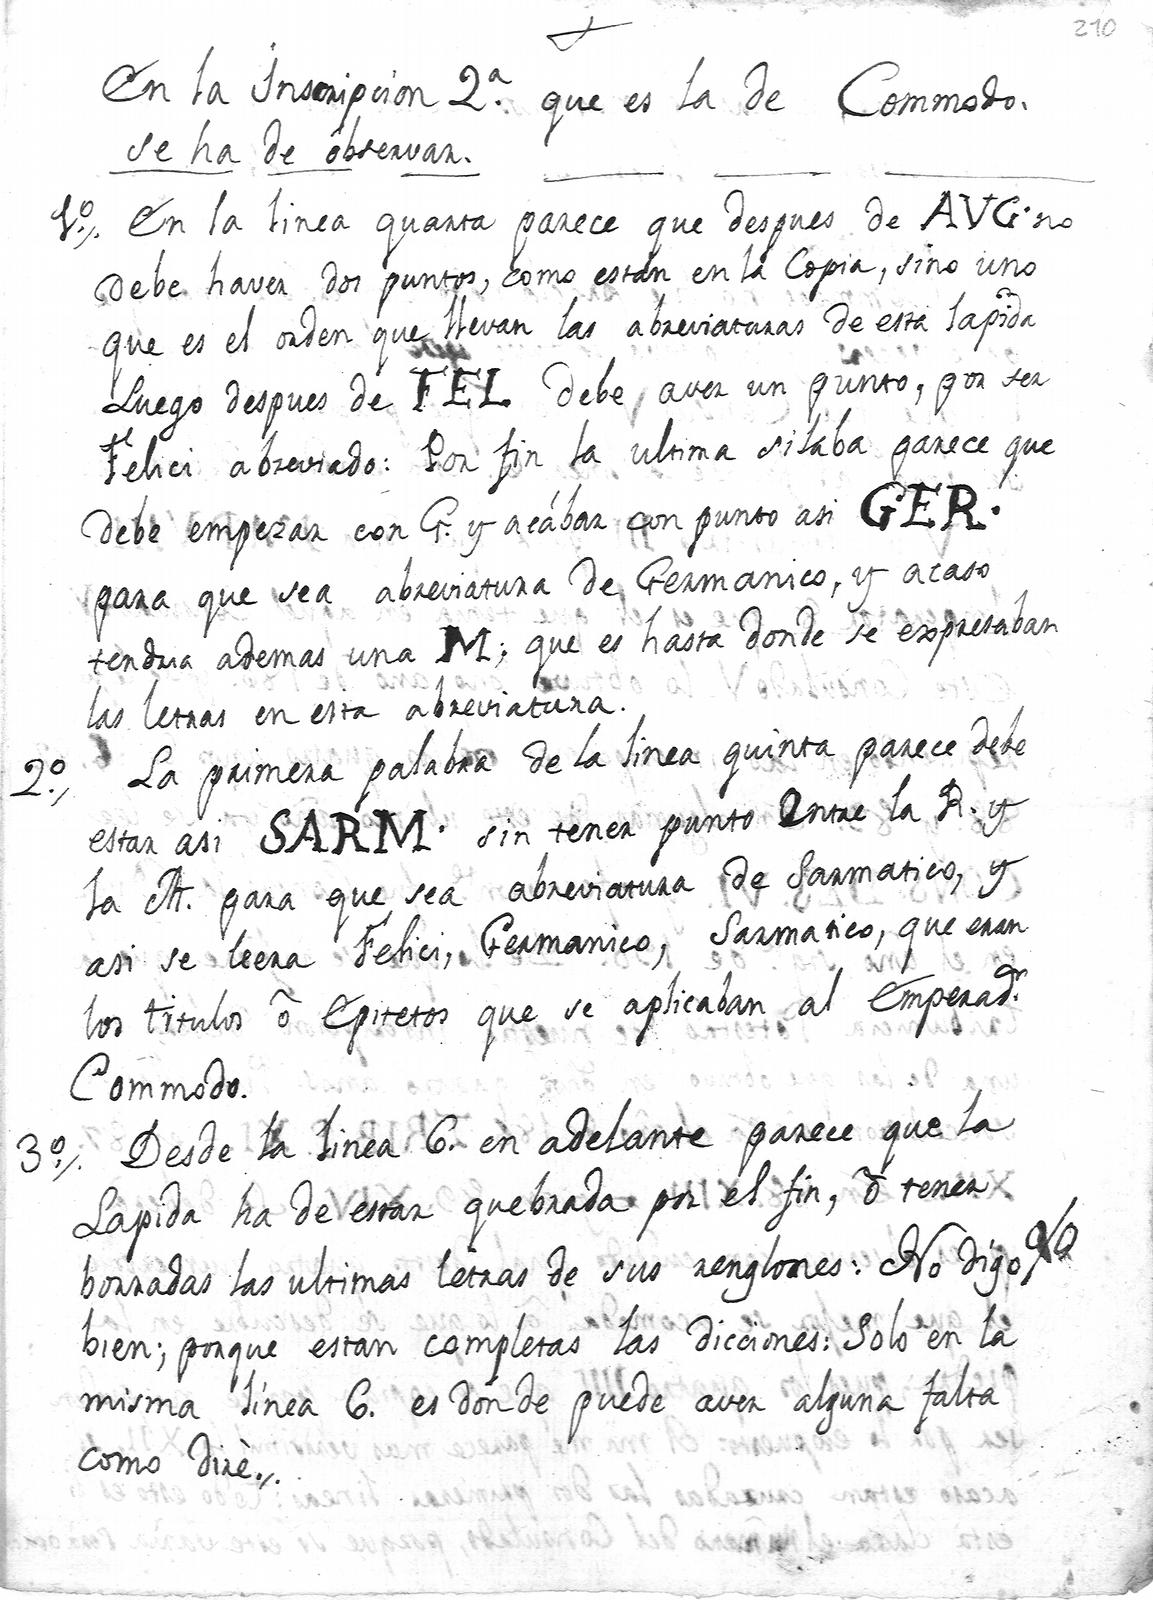 210
En la Inscripcion 2ª. que es la de Commodo.
se ha de observar.
1º. En la linea quarta parece que despues de AVG· no
debe haver dos puntos, como están en la Copia, sino uno
que es el orden que llevan las abreviaturas de esta lapida
Luego despues de FEL debe aver un punto, por ser
Felici abreviado: Por fin la ultima silaba parece que
debe empezar con G. y acábar con punto asi GER·
para que sea abreviatura de Germanico, y acaso
tendria ademas una M; que es hasta donde se expresaban
las letras en esta abreviatura.
2º. La primera palabra de la linea quinta parece debe
estar asi SARM· sin tener punto entre la R. y
la M. para que sea abreviatura de Sarmatico, y
asi se leera Felici, Germanico, Sarmatico, que eran
los titulos ò Epitetos que se aplicaban al Emperadr.
Commodo.
3º. Desde la linea 6. en adelante parece que la
Lapida ha de estar quebrada por el fin, ò tener
borradas las ultimas letras de sus renglones: No digo
bien; porque estan completas las dicciones: Solo en la
misma línea 6. es donde puede aver alguna falta
como dirè.